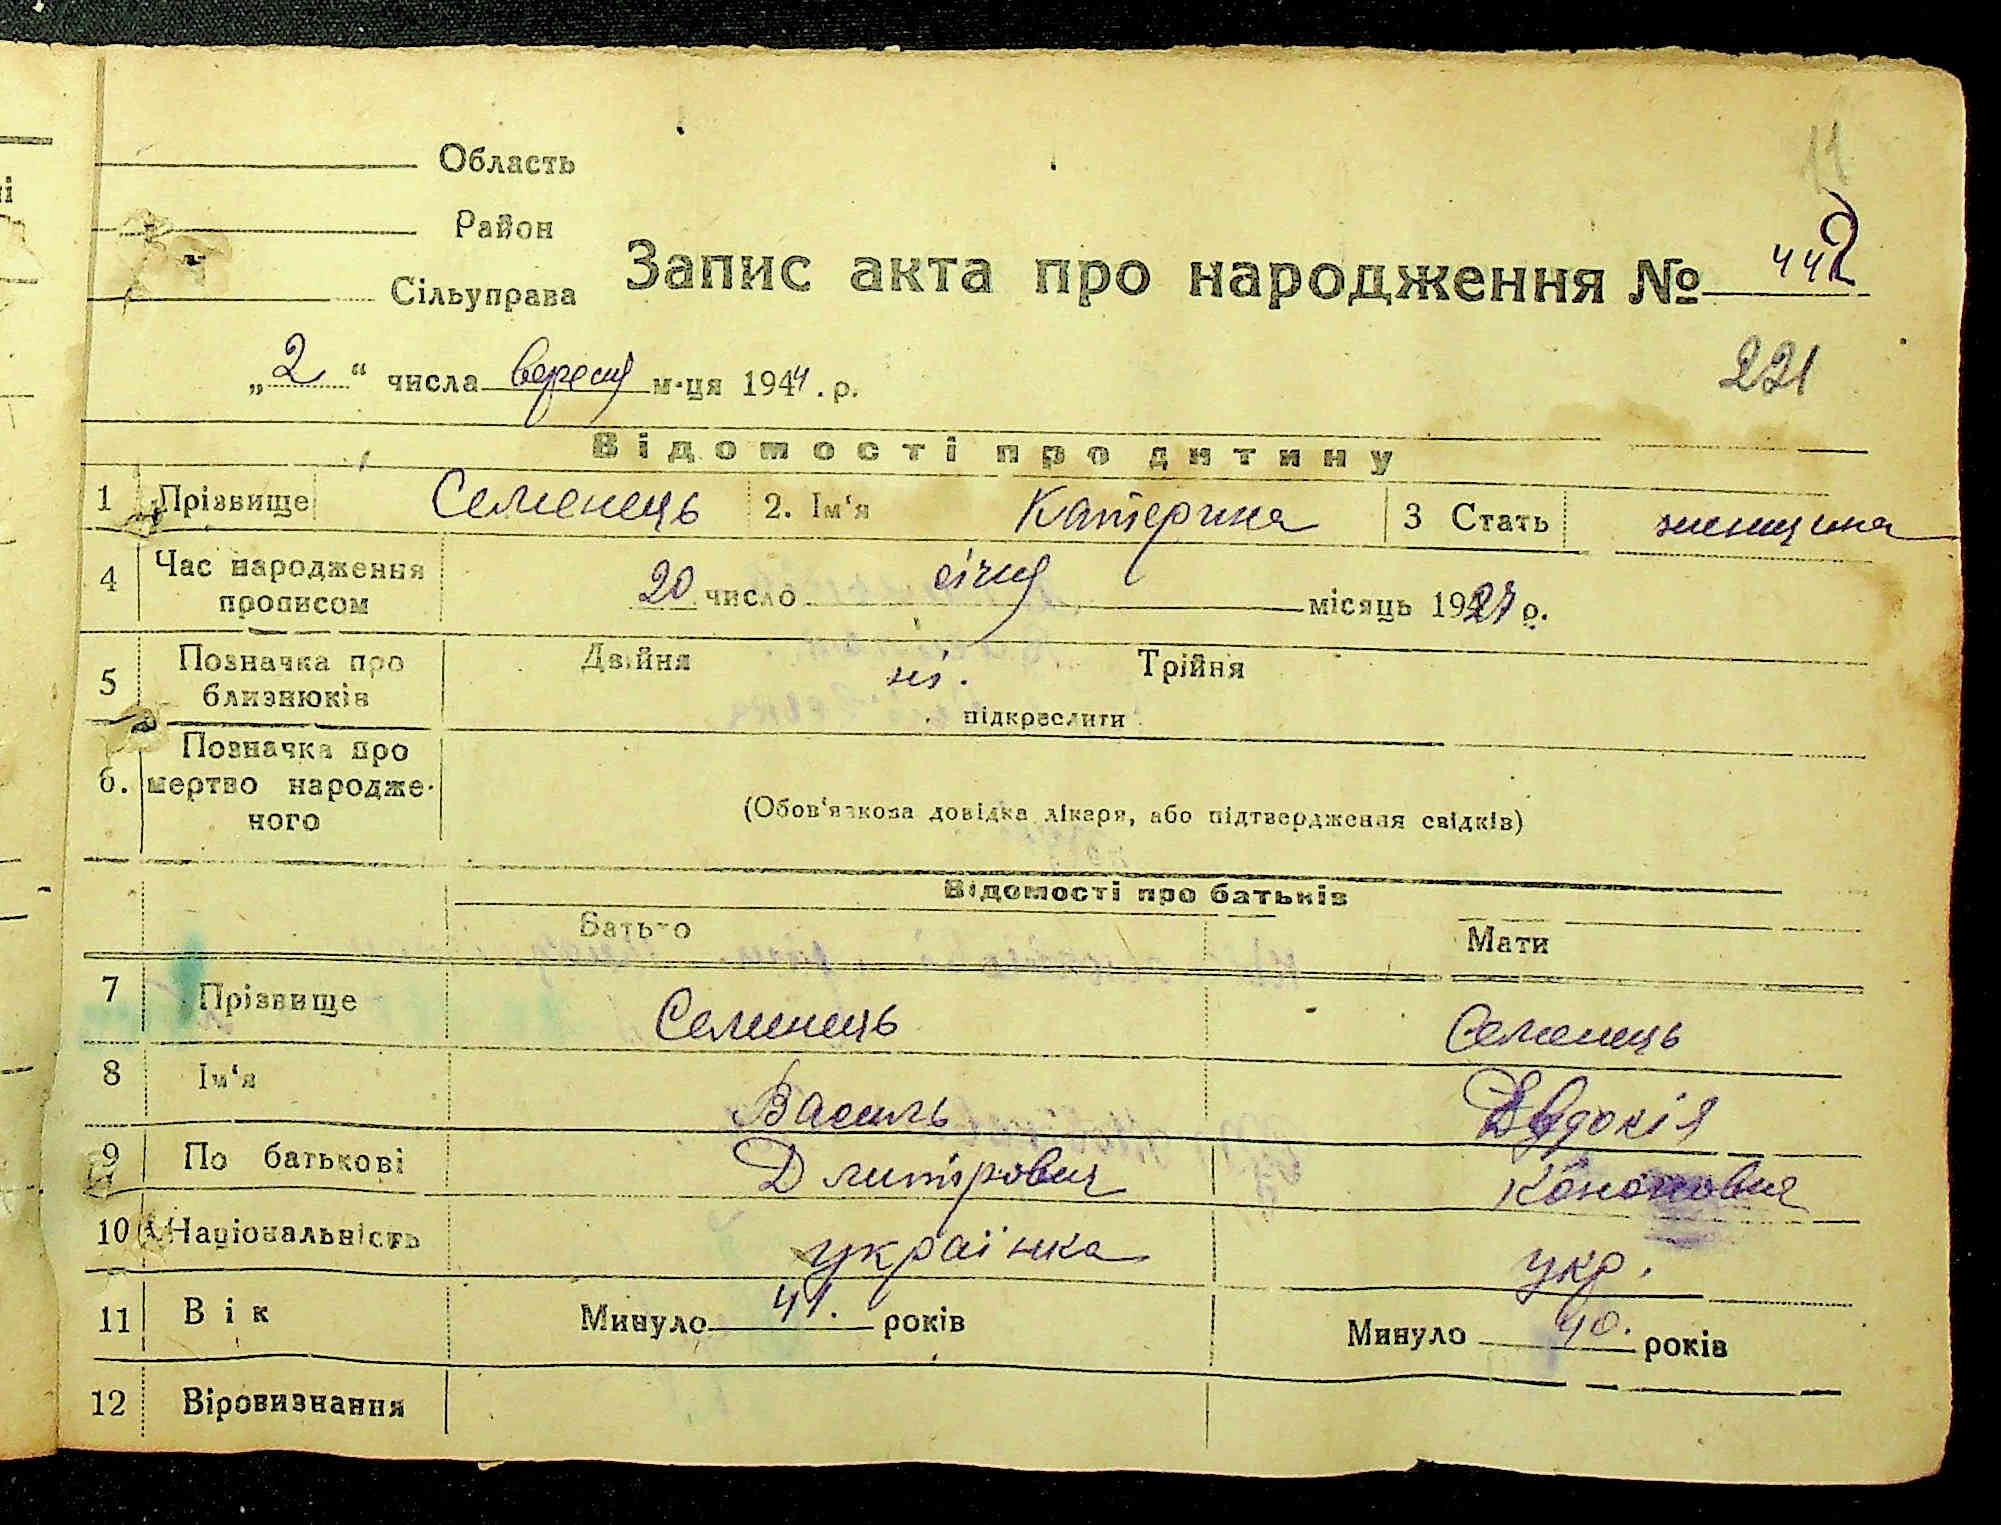 11
Область
Район
Сільуправа
Запис акта про народження №
221
„2“ числа вересня м-ця 1944. р.
Відомості про дитину
1 Прізвище Семенець 2. Ім'я Катерина 3 Стать женщина
4 Час народження прописом 20 число січня місяць 1927 р.
5 Позначка про близнюків Двійня ні. Трійня
підкреслити
6. Позначка про мертво народженого
(Обов'язкова довідка лікаря, або підтвердження свідків)
Відомості про батьків
Батько Мати
7 Прізвище Семенець Семенець
8 Ім'я Василь Евдокія
9 По батькові Дмитрович Кононовна
10 Національність українка укр.
11 Вік Минуло 41. років Минуло 40. років
12 Віровизнання